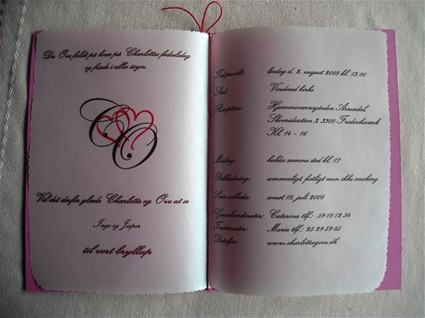 Da Ove faldt på knæ på Charlottes fødselsdag
og friede i alles øregn.
CO
Vil det derfor glæde Charlotte og Ove at se
Inge og Jesper
til vort bryllup
Tidspunkt: lørdag d. 2. august 2008 kl. 13.00
Sted: Vinderød kirke
Reception: Hjemmeværnsgården Arresødal,
3 3300 Frederiksværk
Kl. 14 - 16
Middag: kl. 17
Påklædning: sommerligt festligt men ikke smoking
Svar udbedes: senest 18. juli 2008
Catarina tlf.: 59 18 12 54
Toastmaster: Maria tlf.: 25 29 59 65
www.charlotteogove.dk